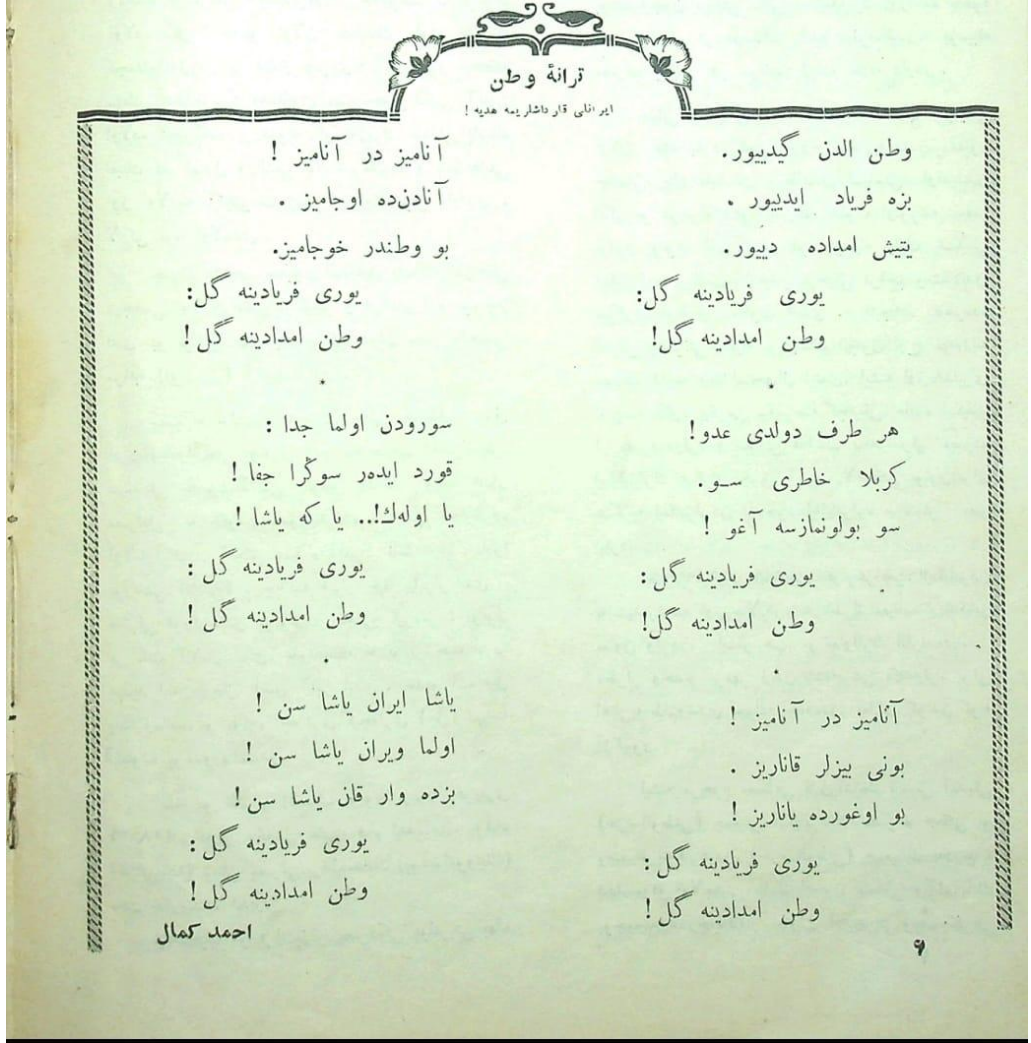 ترانهٔ وطن
ایرانلی قارداشلریمه هدیه !
وطن الدن گیدییور.
بزه فریاد ایدییور .
یتیش امداده دییور.
یوری فریادینه گل:
وطن امدادینه گل!
هر طرف دولدی عدو!
کربلا خاطری سـو.
سو بولونمازسه آغو !
یوری فریادینه گل :
وطن امدادینه گل!
آنامیز در آنامیز !
بونی بیزلر قاناریز .
بو اوغورده یاناریز !
یوری فریادینه گل :
وطن امدادینه گل !
آنامیز در آنامیز !
آنادن‌ده اوجامیز .
بو وطندر خوجامیز.
یوری فریادینه گل:
وطن امدادینه گل !
سورودن اولما جدا :
قورد ایده‌ر سوڭرا جفا !
یا اوله‌ك!.. یا که یاشا !
یوری فریادینه گل :
وطن امدادینه گل !
یاشا ایران یاشا سن !
اولما ویران یاشا سن !
بزده وار قان یاشا سن !
یوری فریادینه گل :
وطن امدادینه گل !
احمد کمال
۹